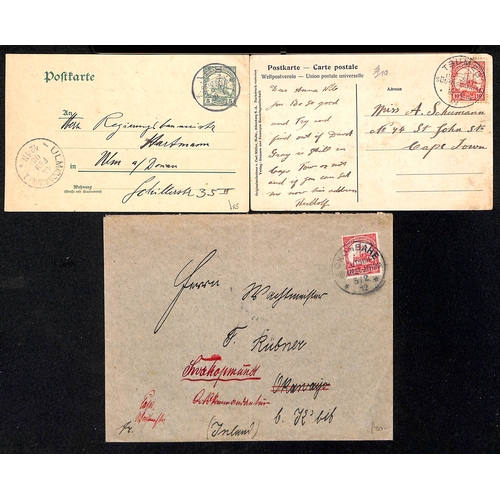 Postkarte
An
Herrn Regierungsbaumeister
Hartmann
in Ulm a/Donau
Wohnung
(Straße und Hausnummer)
Schillerstr 35 II
ULM
Postkarte — Carte postale
Weltpostverein — Union postale universelle
Adresse
TSUMEB
Dear Anna Will
you be so good
and try and
find out if Dave
Gray is still in
Cape Town or not
and if you can get
me now his address
Rudolf
Miss A. Schumann
No 44 St John Str
Cape Town
Herrn
Wachtmeister
F. Kübner
Swakopmund
Okawayo
b. K
(Inland)